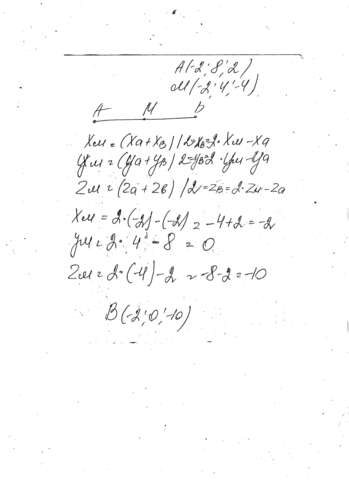 A(-2; 8; 2)
M(-2; 4; -4)
A M b
Xм = (Xa+XB)/2 = XB=2·Xм-Xa
Yм = (Ya+YB)/2=YB=2·Yм-Ya
Zм = (Za+Zв)/2=ZB=2·Zм-Za
Xм = 2·(-2)-(-2) = -4+2=-2
Yм = 2· 4 - 8 = 0
Zм = 2·(-4)-2 = -8-2=-10
B(-2; 0; -10)